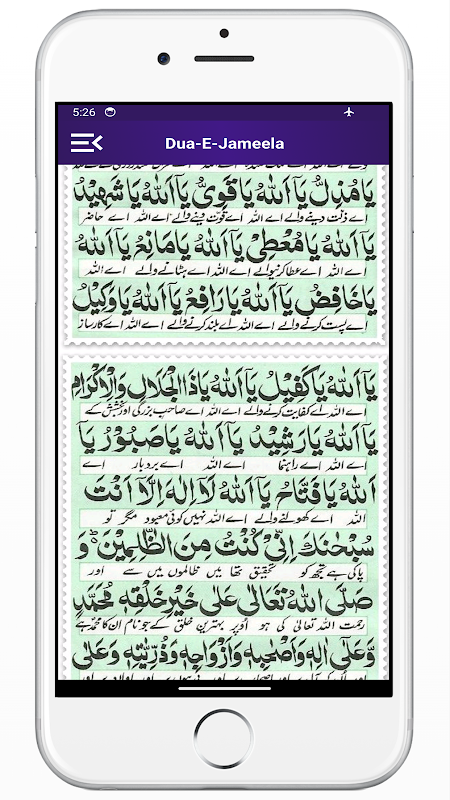 5:26
Dua-E-Jameela
يَا مُذِلُّ يَآ اَللهُ يَا قَوِىُّ يَآ اَللهُ يَا شَهِيْدُ
اے ذلت دینے والے اے اللہ اے قوت دینے والے اے اللہ اے حاضر
يَآ اَللهُ يَا مُعْطِىْ يَآ اَللهُ يَا مَانِعُ يَآ اَللهُ
اے اللہ اے عطا کرنیوالے اے اللہ اے ہٹانے والے اے اللہ
يَا خَافِضُ يَآ اَللهُ يَا رَافِعُ يَآ اَللهُ يَا وَكِيْلُ
اے پست کرنے والے اے اللہ اے بلند کرنے والے اے اللہ اے کارساز
يَآ اَللهُ يَا كَفِيْلُ يَآ اَللهُ يَا ذَا الْجَلَالِ وَالْاِكْرَامِ
اے اللہ اے کفایت کرنے والے اے اللہ اے صاحب بزرگی اور بخشش کے
يَآ اَللهُ يَا رَشِيْدُ يَآ اَللهُ يَا صَبُوْرُ يَآ
اے اللہ اے راہنما اے اللہ اے بردبار اے
اَللهُ يَا فَتَّاحُ يَآ اَللهُ لَآ اِلٰهَ اِلَّآ اَنْتَ
اللہ اے کھولنے والے اے اللہ نہیں کوئی معبود مگر تو
سُبْحٰنَكَ اِنِّىْ كُنْتُ مِنَ الظّٰلِمِيْنَ ؕ وَ
پاکی ہے تجھ کو تحقیق تھا میں ظالموں میں سے اور
صَلَّى اللهُ تَعَالٰى عَلٰى خَيْرِ خَلْقِهٖ مُحَمَّدٍ
رحمت اللہ تعالیٰ کی ہو اوپر بہترین خلق کے جو نام ان کا محمدؐ ہے
وَّعَلٰٓى اٰلِهٖ وَاَصْحٰبِهٖ وَاَزْوَاجِهٖ وَذُرِّيّٰتِهٖ وَعَلٰى